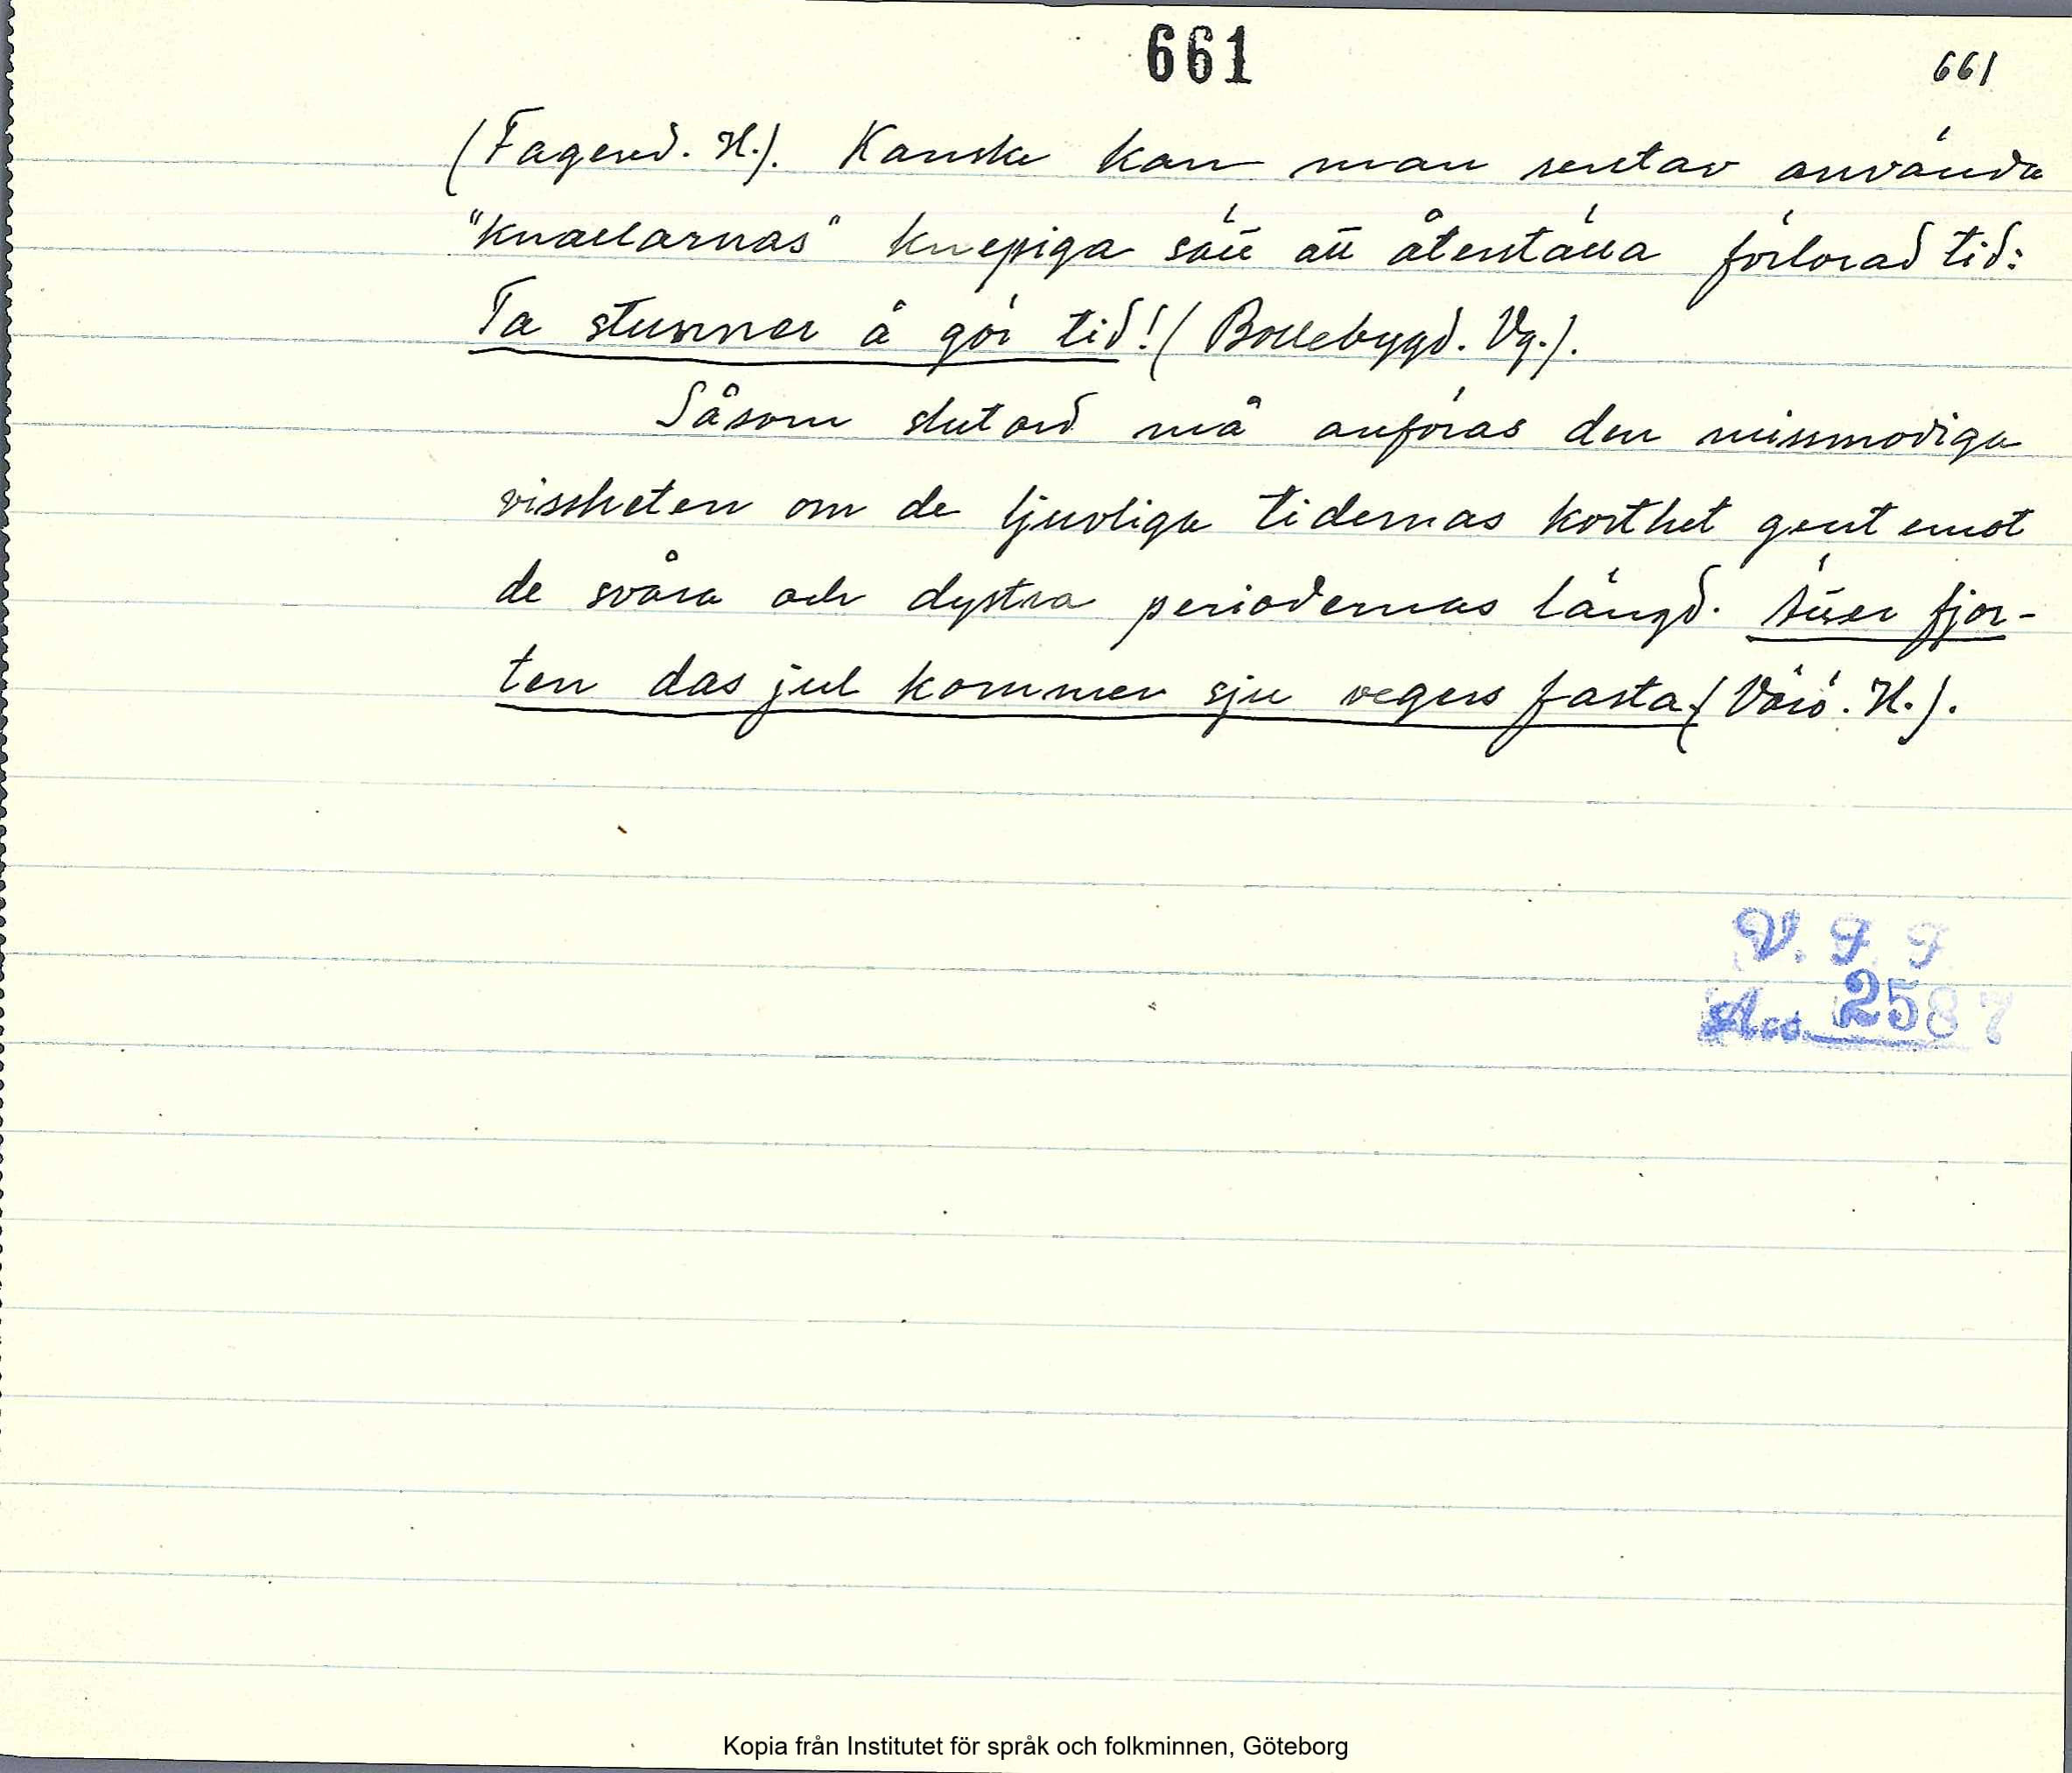 661
661
(Fagered. H.). Kanske kan man rentav använda
"knallarnas" knepiga sätt att återställa förlorad tid:
Ta stunner å gör tid! (Bollebygd. Vg.).
Såsom slutord må anföras den missmodiga
vissheten om de ljuvliga tidernas korthet gent emot
de svåra och dystra periodernas längd. Ätter fjor-
ten das jul kommer sju vegers fasta. (Värö. H.).
V. F. F.
Acc. 2587
Kopia från Institutet för språk och folkminnen, Göteborg